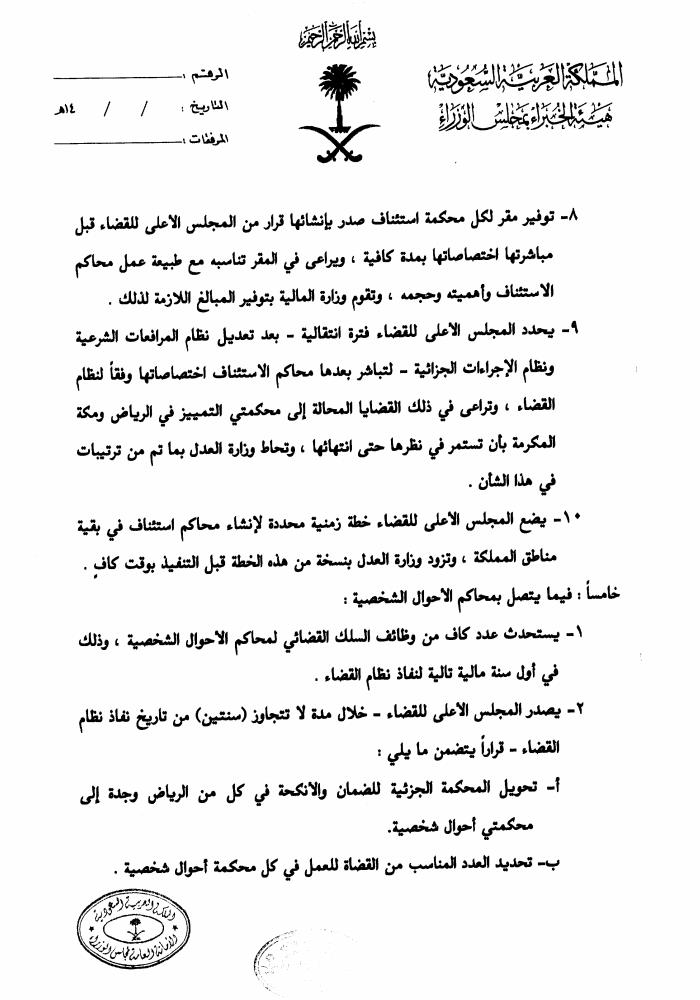 بسم الله الرحمن الرحيم
المملكة العربية السعودية
هيئة الخبراء بمجلس الوزراء
الرقم :
التاريخ : / / ١٤هـ
المرفقات :
٨- توفير مقر لكل محكمة استئناف صدر بإنشائها قرار من المجلس الأعلى للقضاء قبل
مباشرتها اختصاصاتها بمدة كافية ، ويراعى في المقر تناسبه مع طبيعة عمل محاكم
الاستئناف وأهميته وحجمه ، وتقوم وزارة المالية بتوفير المبالغ اللازمة لذلك .
٩- يحدد المجلس الأعلى للقضاء فترة انتقالية - بعد تعديل نظام المرافعات الشرعية
ونظام الإجراءات الجزائية - لتباشر بعدها محاكم الاستئناف اختصاصاتها وفقاً لنظام
القضاء ، وتراعى في ذلك القضايا المحالة إلى محكمتي التمييز في الرياض ومكة
المكرمة بأن تستمر في نظرها حتى انتهائها ، وتحاط وزارة العدل بما تم من ترتيبات
في هذا الشأن .
١٠- يضع المجلس الأعلى للقضاء خطة زمنية محددة لإنشاء محاكم استئناف في بقية
مناطق المملكة ، وتزود وزارة العدل بنسخة من هذه الخطة قبل التنفيذ بوقت كافٍ .
خامساً : فيما يتصل بمحاكم الأحوال الشخصية :
١- يستحدث عدد كاف من وظائف السلك القضائي لمحاكم الأحوال الشخصية ، وذلك
في أول سنة مالية تالية لنفاذ نظام القضاء .
٢- يصدر المجلس الأعلى للقضاء - خلال مدة لا تتجاوز (سنتين) من تاريخ نفاذ نظام
القضاء - قراراً يتضمن ما يلي :
أ- تحويل المحكمة الجزئية للضمان والأنكحة في كل من الرياض وجدة إلى
محكمتي أحوال شخصية.
ب- تحديد العدد المناسب من القضاة للعمل في كل محكمة أحوال شخصية .
المملكة العربية السعودية
الأمانة العامة لمجلس الوزراء